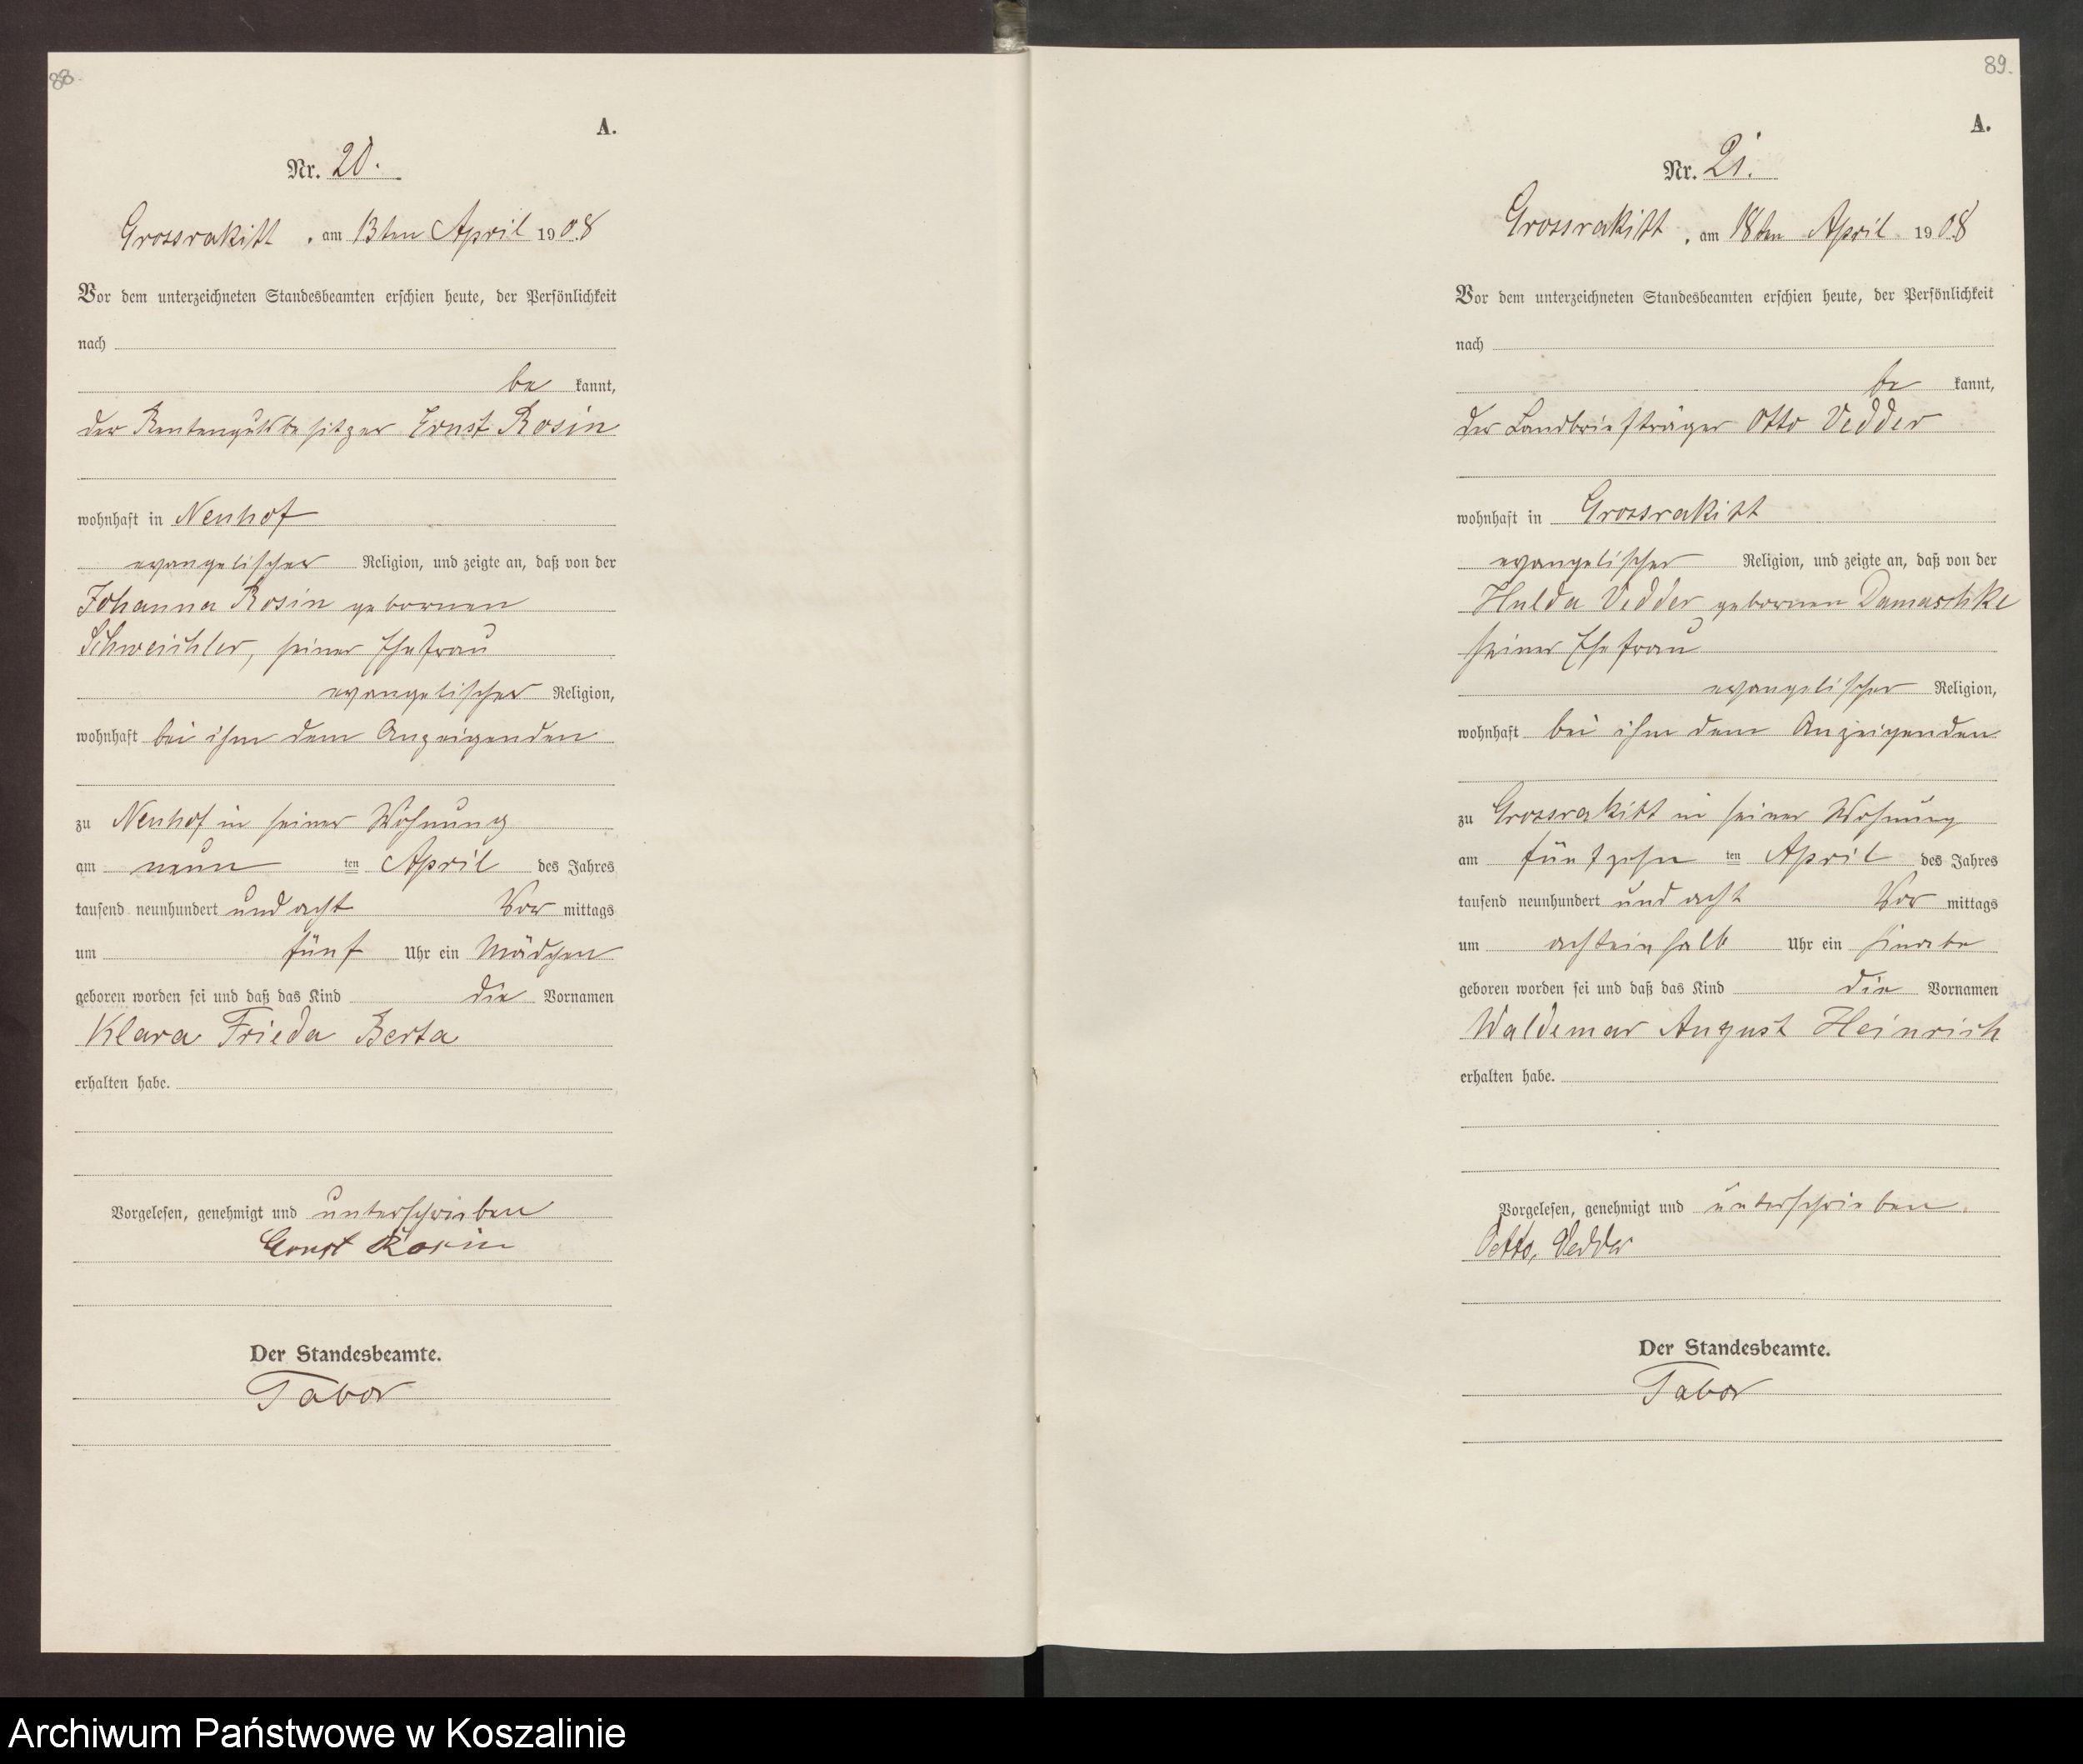 88.
A.
Nr. 20.
Grossrakitt, am 13ten April 1908
Vor dem unterzeichneten Standesbeamten erschien heute, der Persönlichkeit
nach
be kannt,
der Rentengutsbesitzer Ernst Rosin
wohnhaft in Neuhof
evangelischer Religion, und zeigte an, daß von der
Johanna Rosin gebornen
Schweichler, seiner Ehefrau
evangelischer Religion,
wohnhaft bei ihm dem Anzeigenden
zu Neuhof in seiner Wohnung
am neun ten April des Jahres
tausend neunhundert und acht Vor mittags
um fünf Uhr ein Mädchen
geboren worden sei und daß das Kind die Vornamen
Klara Frieda Berta
erhalten habe.
Vorgelesen, genehmigt und unterschrieben
Ernst Rosin
Der Standesbeamte.
Tabor
89.
A.
Nr. 21.
Grossrakitt, am 18ten April 1908
Vor dem unterzeichneten Standesbeamten erschien heute, der Persönlichkeit
nach
be kannt,
der Landbriefträger Otto Vedder
wohnhaft in Grossrakitt
evangelischer Religion, und zeigte an, daß von der
Hulda Vedder gebornen Damaschke
seiner Ehefrau
evangelischer Religion,
wohnhaft bei ihm dem Anzeigenden
zu Grossrakitt in seiner Wohnung
am fünfzehn ten April des Jahres
tausend neunhundert und acht Vor mittags
um achteinhalb Uhr ein Knabe
geboren worden sei und daß das Kind die Vornamen
Waldemar August Heinrich
erhalten habe.
Vorgelesen, genehmigt und unterschrieben.
Otto, Vedder
Der Standesbeamte.
Tabor
Archiwum Państwowe w Koszalinie